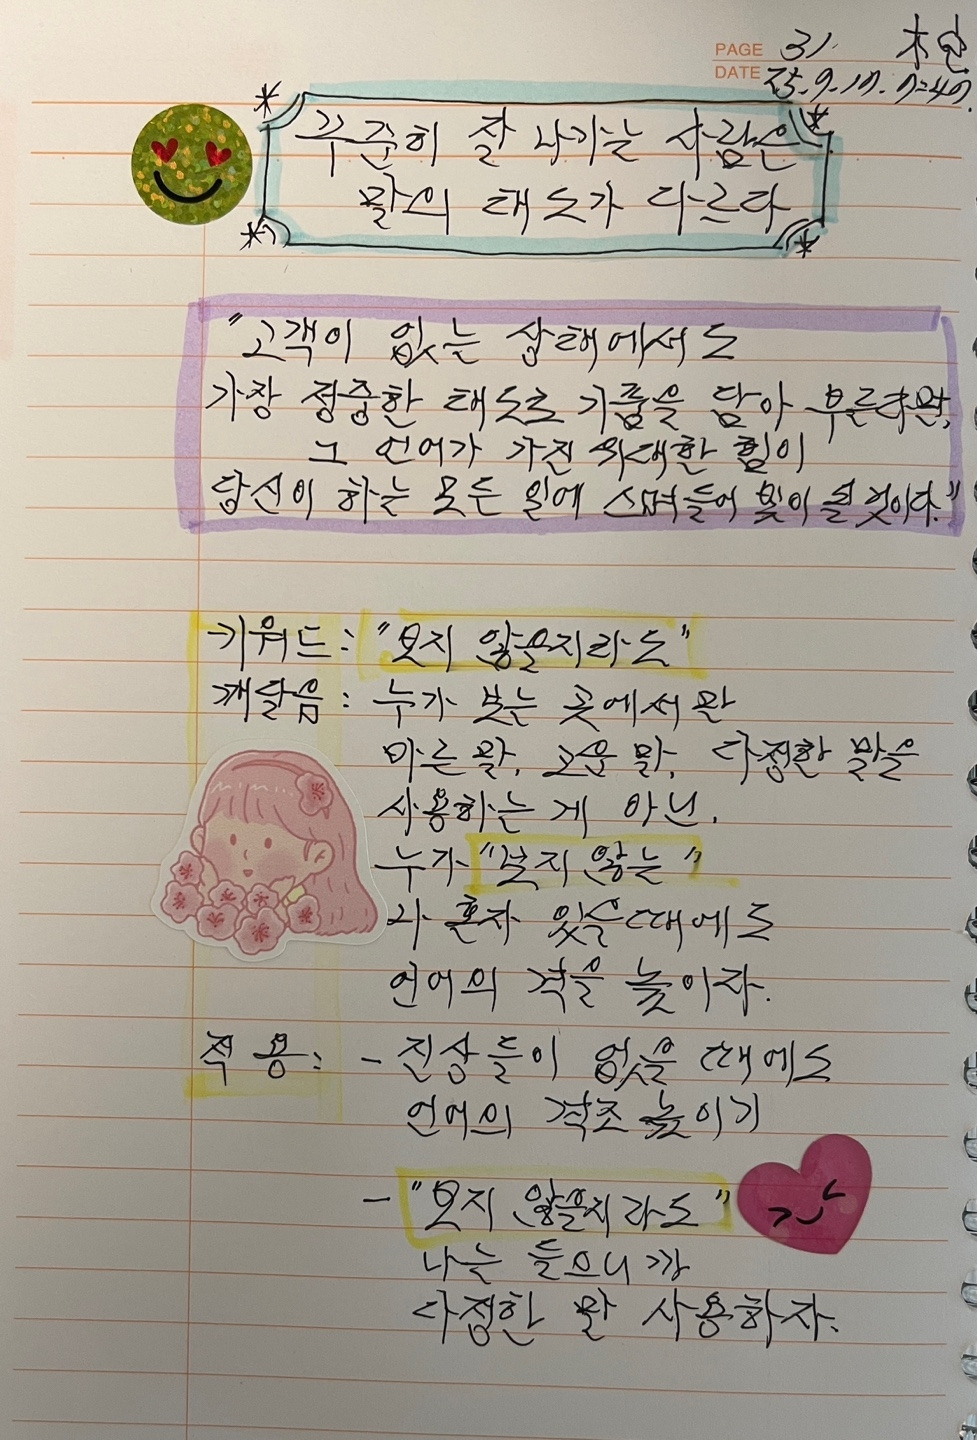 PAGE 31. 木요일
DATE 25.9.18. 7:47.
꾸준히 잘 나가는 사람은
말의 태도가 다르다
"고객이 없는 상태에서도
가장 정중한 태도로 기품을 담아 부른다면,
그 언어가 가진 위대한 힘이
당신이 하는 모든 일에 스며들어 빛이 될 것이다."
키워드 : "보지 않을지라도"
깨달음 : 누가 보는 곳에서만
바른 말, 고운 말, 다정한 말을
사용하는 게 아닌,
누가 "보지 않는"
나 혼자 있을 때에도
언어의 격을 높이자.
적용 : - 진상들이 없을 때에도
언어의 격조 높이기
- "보지 않을지라도"
나는 들으니깐
다정한 말 사용하자.